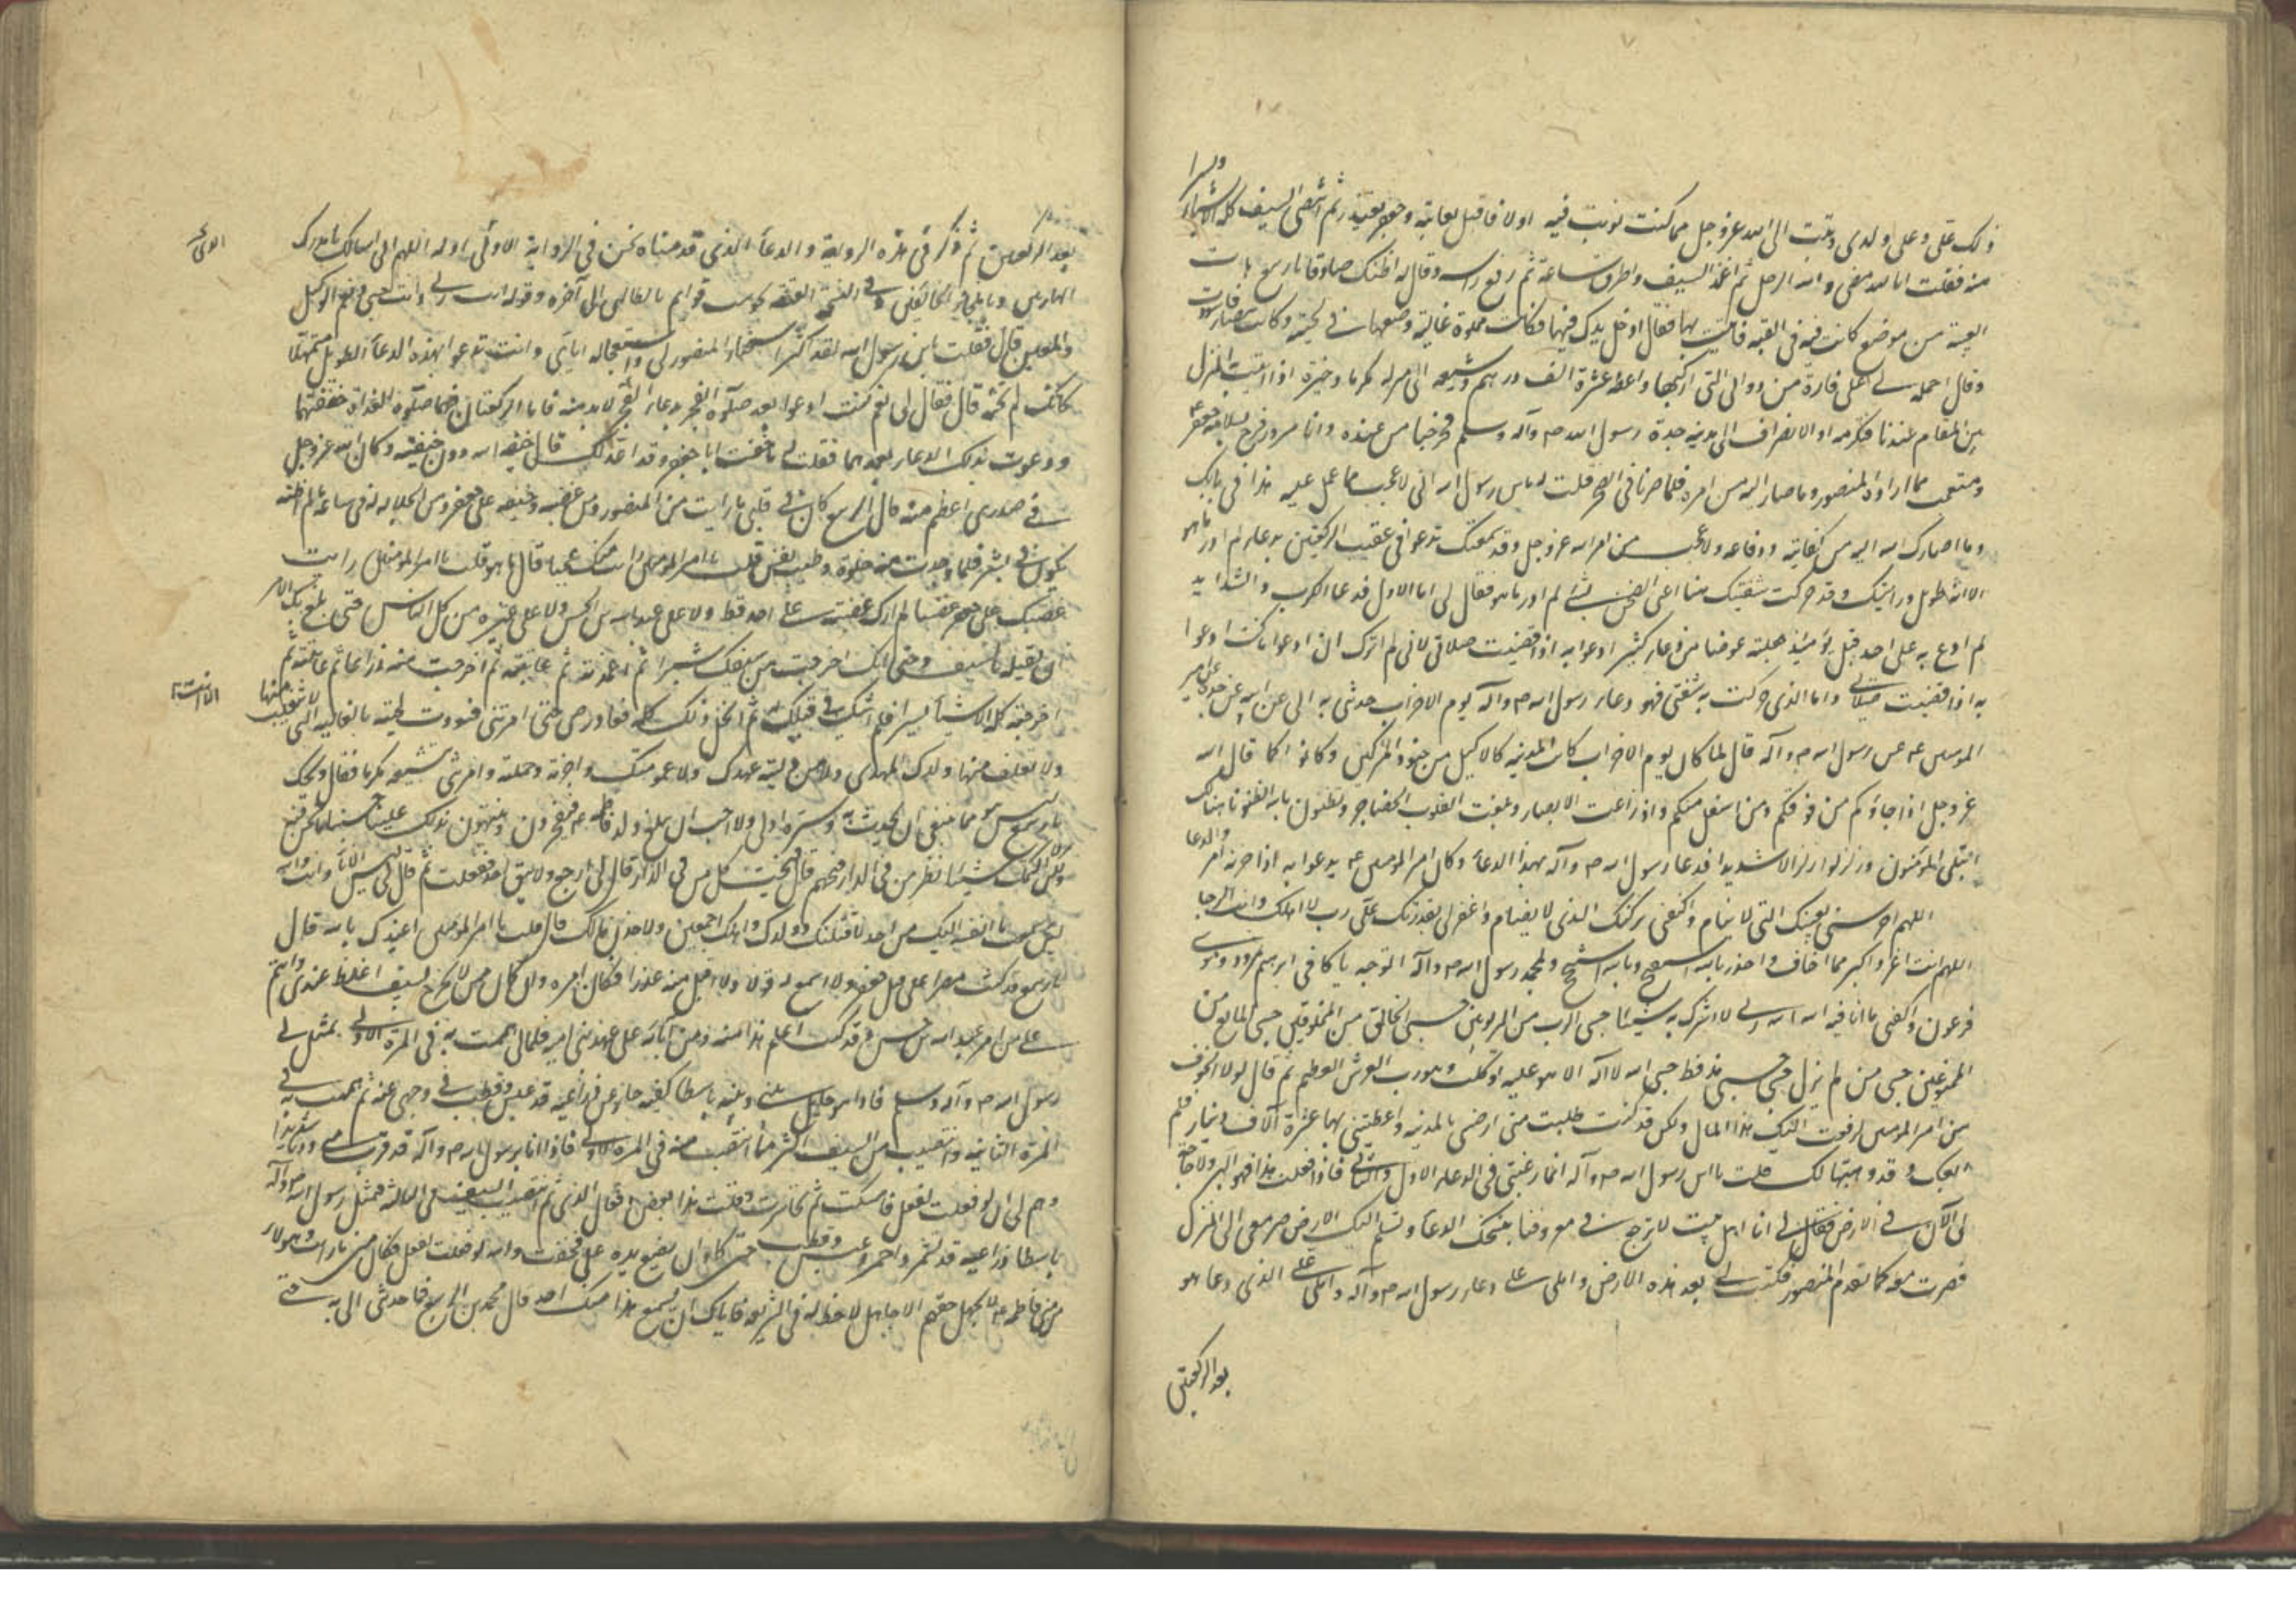 ذلك علي وعلى ولدي وتبت الى الله عز وجل مما كنت نويت فيه اولا فاقبل يعاتبه وجعفر يعتذر ثم انتضى السيف كله الا شيئا
يسيرا
منه فقلت انا لله مضى والله الرجل ثم اغمد السيف واطرق ساعة ثم رفع راسه وقال له اظنك صادقا يا ربيع هات
العيبة من موضع كانت فيه في القبة فاتيت بها فقال ادخل يدك فيها فكانت مملوة غالية وضعها في لحيته وكانت بيضاء
وقال احمله على فاره من دوابي التي اركبها واعطه عشرة الف درهم وشيعه الى منزله مكرما وخيره اذا اتيت المنزل
بين المقام عندنا فنكرمه او الانصراف الى مدينة جده رسول الله ص وآله وسلم فخرجنا من عنده وانا مسرور فرح بسلامة جعفر
ومتعجب مما اراد المنصور وما صار اليه من امره فلما صرنا في الصحن قلت له يا بن رسول الله اني لاعجب مما عمل عليه هذا في بابك
وما اصارك الله اليه من كفايته ودفاعه ولا عجب من امر الله عز وجل وقد سمعتك تدعو في عقيب الركعتين بدعاء لم ادر ما هو
الا انه طويل ورايتك وقد حركت شفتيك هنا اعني الصحن بشئ لم ادر ما هو فقال لي اما الاول فدعاء الكرب والشدايد
لم ادع به على احد قبل يومئذ جعلته عوضا من دعاء كثير ادعو به اذا قضيت صلاتي لاني لم اترك ان ادعو ما كنت ادعو
به اذا قضيت صلاتي واما الذي حركت به شفتي فهو دعاء رسول الله ص وآله يوم الاحزاب حدثني به ابي عن ابيه عن جده عن امير
المومنين ع عن رسول الله ص وآله قال لما كان يوم الاحزاب كانت المدينة كالاكليل من جنود المشركين وكانوا كما قال الله
عز وجل اذ جاؤكم من فوقكم ومن اسفل منكم واذ زاغت الابصار وبلغت القلوب الحناجر وتظنون بالله الظنونا هنالك
ابتلي المؤمنون وزلزلوا زلزالا شديدا فدعا رسول الله ص وآله بهذا الدعاء وكان امير المومنين ع يدعو به اذا حزنه امر والدعا
اللهم احرسني بعينك التي لا تنام واكنفني بركنك الذي لا يضام واغفر لي بقدرتك علي رب لا اهلك وانت الرجا
اللهم انت اعز واكبر مما اخاف واحذر بالله استفتح وبالله استنجح وبمحمد رسول الله ص وآله اتوجه يا كافي ابرهيم نمرود وموسى
فرعون واكفني ما انا فيه الله الله ربي لا اشرك به شيئا حسبي الرب من المربوبين حسبي الخالق من المخلوقين حسبي المانع من
الممنوعين حسبي من لم يزل حسبي حسبي مذ قط حسبي الله لا اله الا هو عليه توكلت وهو رب العرش العظيم ثم قال لولا الخوف
من امير المومنين لدفعت اليك هذا المال ولكن قد كنت طلبت مني ارضي بالمدينة واعطيتني بها عشرة آلاف دينار فلم
ابعك وقد وهبتها لك قلت يا ابن رسول الله ص وآله انما رغبتي في الدعاء الاول والثاني فاذا فعلت هذا فهو البر ولا حاجة
لي الآن في الارض فقال لي انا اهل بيت لا نرجع في معروفنا نحن ننسخك الدعاء ونسلم اليك الارض صر معي الى المنزل
فصرت معه كما تقدم المنصور فكتب لي بعهد هذه الارض واملى علي دعاء رسول الله ص وآله واملى علي الذي دعا هو
بعد الركعتين
بعد الركعتين ثم ذكر في هذه الرواية والدعاء الذي قدمناه نحن في الرواية الاولى اوله اللهم اني اسالك يا مدرك
الهاربين ويا ملجأ الخائفين وفي النسخة العتيقة وقوله انت ربي وانت حسبي ونعم الوكيل
والمعين قال فقلت يا بن رسول الله لقد كثر استحثاث المنصور لي واستعجاله اياي وانت تدعو بهذا الدعاء الطويل متمهلا
كانك لم تخشه قال فقال لي نعم كنت ادعو بعد صلوة الفجر بدعاء لا بد منه فاما الركعتان فهما صلوة الغداة خففتهما
ودعوت بذلك الدعاء بعدهما فقلت له ما خفت ابا جعفر وقد اعد لك قال خيفة الله دون خيفته وكان الله عز وجل
في صدري اعظم منه قال الربيع كان في قلبي ما رايت من المنصور ومن غضبه وخيفه على جعفر ومن الجلالة له في ساعة ما لم اظنه
يكون في بشر فلما وجدت منه خلوة وطيب نفس قلت يا امير المومنين رايت منك عجبا قال ما هو قلت يا امير المومنين رايت
غضبك على جعفر غضبا لم ارك غضبته على احد قط ولا على عبد الله بن الحسن ولا على غيره من كل الناس حتى بلغ بك الامر
ان تقتله بالسيف وحتى انك اخرجت من سيفك شبرا ثم اغمدته ثم عاتبته ثم اخرجت منه ذراعا ثم عاتبته ثم
اخرجته كله الا شيئا يسيرا فلم اشك في قتلك له ثم انجلى ذلك كله فعاد رضى حتى امرتني فسودت لحيته بالغالية التي لا يتغلف منها
الا انت
ولا يتغلف منها ولدك المهدي ولا من وليته عهدك ولا عمومتك واجزته وحملته وامرتني بتشييعه مكرما فقال ويحك
يا ربيع ليس هو مما ينبغي ان يحدث به وستره اولى ولا احب ان يبلغ ولد فاطمة ع فيفخرون ويتيهون بذلك علينا حسبنا ما نحن فيه
ولكن لا اكتمك شيئا انظر من في الدار فنحهم قال فنحيت كل من في الدار ثم قال لي ارجع ولا تبق احدا ففعلت ثم قال لي ليس الا انا وانت والله
لئن سمعت ما القيه اليك من احد لاقتلنك وولدك واهلك اجمعين ولاخذن مالك قال قلت يا امير المومنين اعيذك بالله قال
يا ربيع قد كنت مصرا على قتل جعفر ولا اسمع له قولا ولا اقبل منه عذرا وكان امره وان كان ممن لا يخرج بسيف اغلظ عندي واهم
علي من امر عبد الله بن الحسن وقد كنت اعلم هذا منه ومن آبائه على عهد بني امية فلما هممت به في المرة الاولى تمثل لي
رسول الله ص وآله وسلم فاذا هو حايل بيني وبينه باسط كفيه حاسر عن ذراعيه قد عبس وقطب في وجهي عنه ثم هممت به في
المرة الثانية وانتضيت من السيف اكثر مما انتضيت منه في المرة الاولى فاذا انا برسول الله ص وآله قد قرب مني ودنا شديدا
وهم لي ان لو فعلت لفعل فامسكت ثم تجاسرت وقلت هذا بعض افعال الرئي ثم انتضيت السيف في الثالثة فتمثل لي رسول الله ص وآله
باسطا ذراعيه قد تشمر واحمر وعبس وقطب حتى كاد ان يضع يده علي فخفت والله لو فعلت لفعل فكان مني ما رايت وهولاء
من بني فاطمة ع لا يجهل حقهم الا جاهل لا حظ له في الشريعة فاياك ان يسمع هذا منك احد قال محمد بن الربيع فما حدثني ابي به حتى